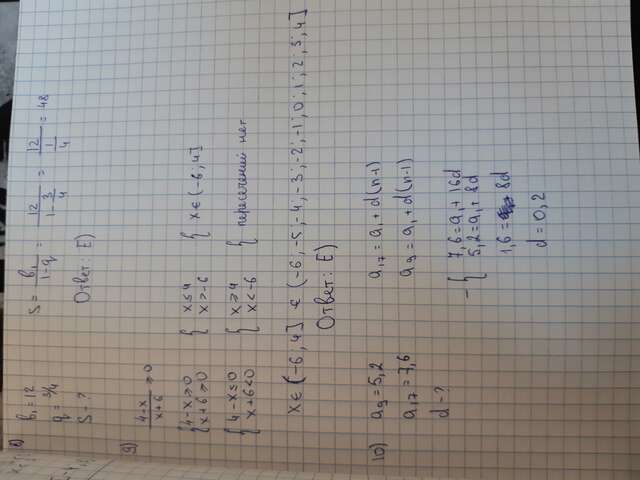 8)
b₁=12
q = 3/4
S - ?
S = b₁/(1-q) = 12/(1-3/4) = 12/(1/4) = 48
Ответ: E)
9) (4-x)/(x+6) ⩾0
{4-x⩾0 {x⩽4
{x+6⩾0 {x>-6 { x∈(-6;4]
{4-x⩽0 {x⩾4
{x+6<0 {x<-6 { пересечений нет
x∈(-6;4] ∈ (-6;-5;-4;-3;-2;-1;0;1;2;3;4]
Ответ: E)
10) a₉=5,2 a₁₇=a₁+d(n-1)
a₁₇=7,6 a₉=a₁+d(n-1)
d - ?
- { 7,6=a₁+16d
5,2=a₁+8d
1,6= 8d
d=0,2